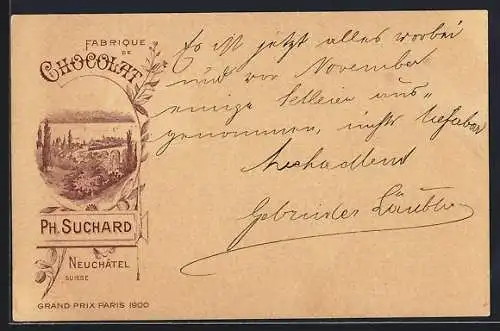 FABRIQUE
DE
CHOCOLAT
PH. SUCHARD
NEUCHÂTEL
SUISSE
GRAND PRIX PARIS 1900
Es ist jetzt alles vorbei
und vor November
einige aus-
genommen, nicht
Gebrüder